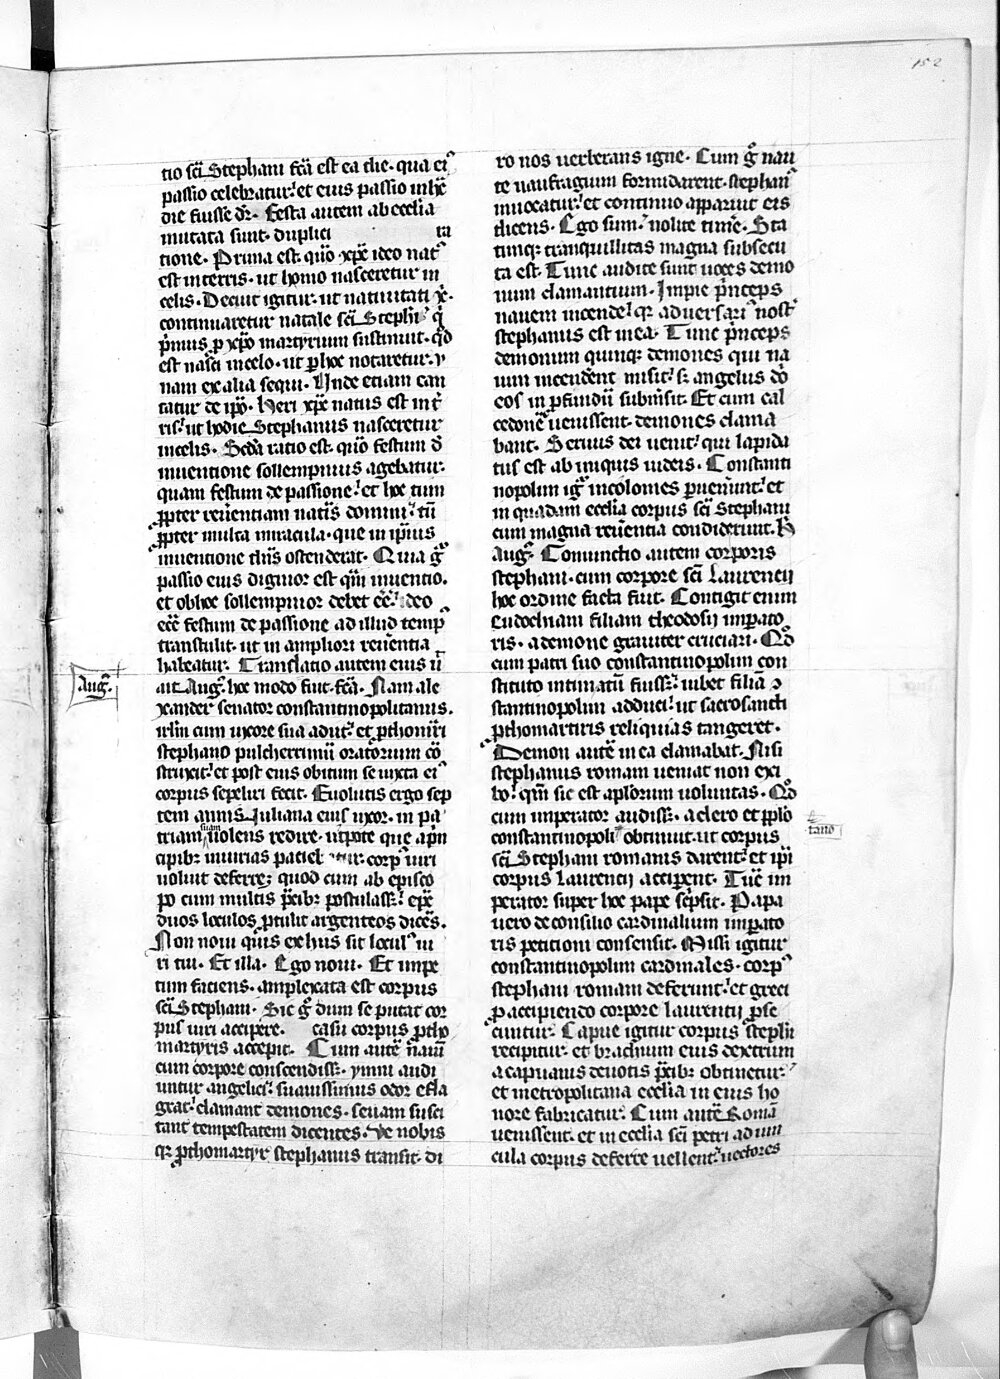 152
tio sc̄i Stephani fc̄a est ea die · qua ei᷒
passio celebratur᷑ et eius passio inhē
die fuisse dr̄ · Festa autem ab ecclīa
mutata sunt · duplici ra
tione · Prima est · quō xp̄c ideo nat᷒
est interris · ut homo nasceretur in
celis · Decuit igitur · ut natiuitati x̄ ·
continuaretur natale sc̄i Steph̄i q̄
p̄mus p xp̄o martyrium sustinuit · qd̄
est nasci incelo · ut p hoc notaretur · y
nam ex alia sequi · Unde etiam can
tatur de ip̄o · Heri xp̄c natus est int̄
ris᷑ ut hodie Stephanus nasceretur
incelis · Sc̄da ratio est · quō festum d̄
inuentione sollempnius agebatur ·
quam festum de passione᷑ et hoc tum
pp̄ter reuēentiam natīs domini᷑ tū
pp̄ter multa miracula · que in ip̄ius
inuentione dn̄s ostenderat · Quia ḡ
passio eius dignior est qm̄ inuentio ·
et ob hoc sollempnior debet eē᷑ ideo
ecc̄ festum de passione ad illud temp᷒
transtulit · ut in ampliori reuēntia
habeatur · Translatio autem eius ū
Aug᷒
ait Aug᷒ · hoc modo fuit · fc̄a · Nam ale
xander senator constantinopolitanus ·
irl̄m cum uxore sua adiit᷑ et p̄thom̄ri
stephano pulcherrimū oratorium cō
struxit᷑ et post eius obitum se iuxta ei᷒
corpus sepeliri fecit · Euolutis ergo sep
tem annis Juliana eius uxor · in pa
triam suam uolens redire · utpote que a p̄n
cipib᷒ iniurias corp᷒ uiri
uoluit deferre quod cum ab episco
po cum multis p̄cib᷒ postulass᷑ ep̄c
duos loculos p̄tulit argenteos dicēs ·
Non noui quis ex hiis sit locul᷒ ui
ri tui · Et illa · Ego noui · Et impe
tum faciens · amplexata est corpus
sc̄i Stephani · Sic ḡ dum se putat cor
pus uiri accipere · casu corpus p̄tho
martyris accepit · Cum autē nauī
cum corpore conscendiss᷑ · ymni audi
untur angelici᷑ suauissimus odor efla
grat᷑ clamant demones · seuam susci
tant tempestatem dicentes · Ve nobis
q᷒ p̄thomartyr stephanus transit · di
ro nos uerberans igne · Cum ḡ nau
te naufragium formidarent · stephan᷒
inuocatur᷑ et continuo apparuit eis
dicens · Ego sum᷑ nolite timē · Sta
timq᷒ tranquillitas magna subsecu
ta est · Tunc audite sunt uoces demo
num clamantium · Impie p̄nceps
nauem incende᷑ q᷒ aduersari᷒ nost᷑
stephanus est in ea · Tunc p̄nceps
demonum quinq᷒ demones qui na
uim incendent misit᷑ s᷑ angelus dō
eos in p̄fundū submsit · Et cum cal
cedonē uenissent · demones clama
bant · Seruus dei uenit᷑ qui lapida
tus est ab iniquis iudeis · Constanti
nopolim igr̄ incolomes p̄uenerunt᷑ et
in quadam ecclīa corpus sc̄i Stephani
cum magna reuēntia condiderunt · H̄
Aug᷒ · Coniunctio autem corporis
stephani · cum corpore sc̄i Laurencii
hoc ordine facta fuit · Contigit enim
Eudochiam filiam theodosii imp̄ato
ris · a demone grauiter cruciari · Qd̄
cum patri suo constantinopolim con
stituto intimatū fuiss᷑ · iubet filiā ꝯ
stantinopolim adduci᷑ ut sacrosancti
p̄thomartiris reliquias tangeret ·
Demon autē in ea clamabat · Nisi
stephanus romam ueniat non exi
bo᷑ qm̄ sic est aplōrum uoluntas · Qd̄
cum imperator audiss᷑ · a clero et pplō
constantinopoli obtinuit · ut corpus
tano
sc̄i Stephani romanis darent᷑ et ip̄i
corpus Laurencii accip̄ent · Tūc im
perator super hoc pape sc̄psit · Papa
uero de consilio cardinalium imp̄ato
ris peticioni consensit · Missi igitur
constantinopolim cardinales · corp᷒
stephani romam deferunt᷑ et greci
p accipiendo corpore laurentii p̄fic
ciuntur · Capue igitur corpus stepħi
recipitur · et brachium eius dextrum
a capuanis deuotis p̄cib᷒ obtinetur᷑
et metropolitana ecclīa in eius ho
nore fabricatur · Cum autē Romā
uenissent · et in ecclīa sc̄i petri ad uin
cula corpus deferre uellent᷑ uectores